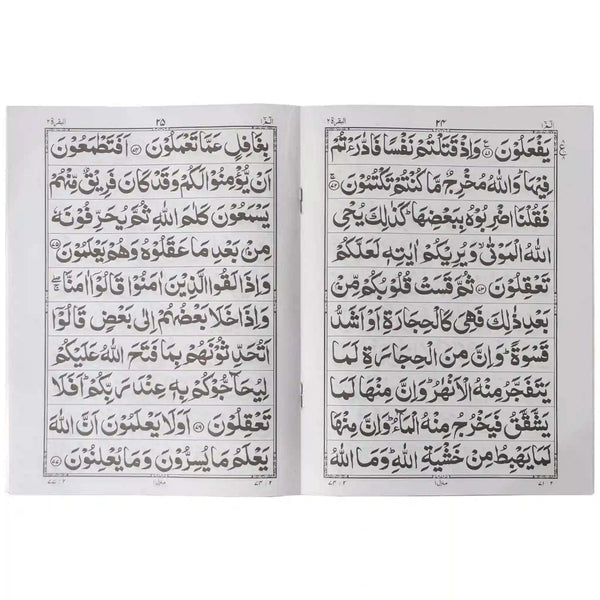 الٓمّٓ ١ ٢٤ البقرة ٢
يَفْعَلُوْنَ ﴿٧١﴾ وَاِذْ قَتَلْتُمْ نَفْسًا فَادّٰرَءْتُمْ
فِيْهَا ؕ وَاللّٰهُ مُخْرِجٌ مَّا كُنْتُمْ تَكْتُمُوْنَ ﴿٧٢﴾
فَقُلْنَا اضْرِبُوْهُ بِبَعْضِهَا ؕ كَذٰلِكَ يُحْيِ
اللّٰهُ الْمَوْتٰى ۙ وَيُرِيْكُمْ اٰيٰتِهٖ لَعَلَّكُمْ
تَعْقِلُوْنَ ﴿٧٣﴾ ثُمَّ قَسَتْ قُلُوْبُكُمْ مِّنْۢ
بَعْدِ ذٰلِكَ فَهِيَ كَالْحِجَارَةِ اَوْ اَشَدُّ
قَسْوَةً ؕ وَاِنَّ مِنَ الْحِجَارَةِ لَمَا
يَتَفَجَّرُ مِنْهُ الْاَنْهٰرُ ؕ وَاِنَّ مِنْهَا لَمَا
يَشَّقَّقُ فَيَخْرُجُ مِنْهُ الْمَآءُ ؕ وَاِنَّ مِنْهَا
لَمَا يَهْبِطُ مِنْ خَشْيَةِ اللّٰهِ ؕ وَمَا اللّٰهُ
٢ : ٧١ منزل ١ ٢ : ٧٣
الٓمّٓ ١ ٢٥ البقرة ٢
بِغَافِلٍ عَمَّا تَعْمَلُوْنَ ﴿٧٤﴾ اَفَتَطْمَعُوْنَ
اَنْ يُّؤْمِنُوْا لَكُمْ وَقَدْ كَانَ فَرِيْقٌ مِّنْهُمْ
يَسْمَعُوْنَ كَلٰمَ اللّٰهِ ثُمَّ يُحَرِّفُوْنَهٗ
مِنْۢ بَعْدِ مَا عَقَلُوْهُ وَهُمْ يَعْلَمُوْنَ ﴿٧٥﴾
وَاِذَا لَقُوا الَّذِيْنَ اٰمَنُوْا قَالُوْٓا اٰمَنَّا ۖۚ
وَاِذَا خَلَا بَعْضُهُمْ اِلٰى بَعْضٍ قَالُوْٓا
اَتُحَدِّثُوْنَهُمْ بِمَا فَتَحَ اللّٰهُ عَلَيْكُمْ
لِيُحَآجُّوْكُمْ بِهٖ عِنْدَ رَبِّكُمْ ؕ اَفَلَا
تَعْقِلُوْنَ ﴿٧٦﴾ اَوَلَا يَعْلَمُوْنَ اَنَّ اللّٰهَ
يَعْلَمُ مَا يُسِرُّوْنَ وَمَا يُعْلِنُوْنَ ﴿٧٧﴾
٢ : ٧٣ منزل ١ ٢ : ٧٧